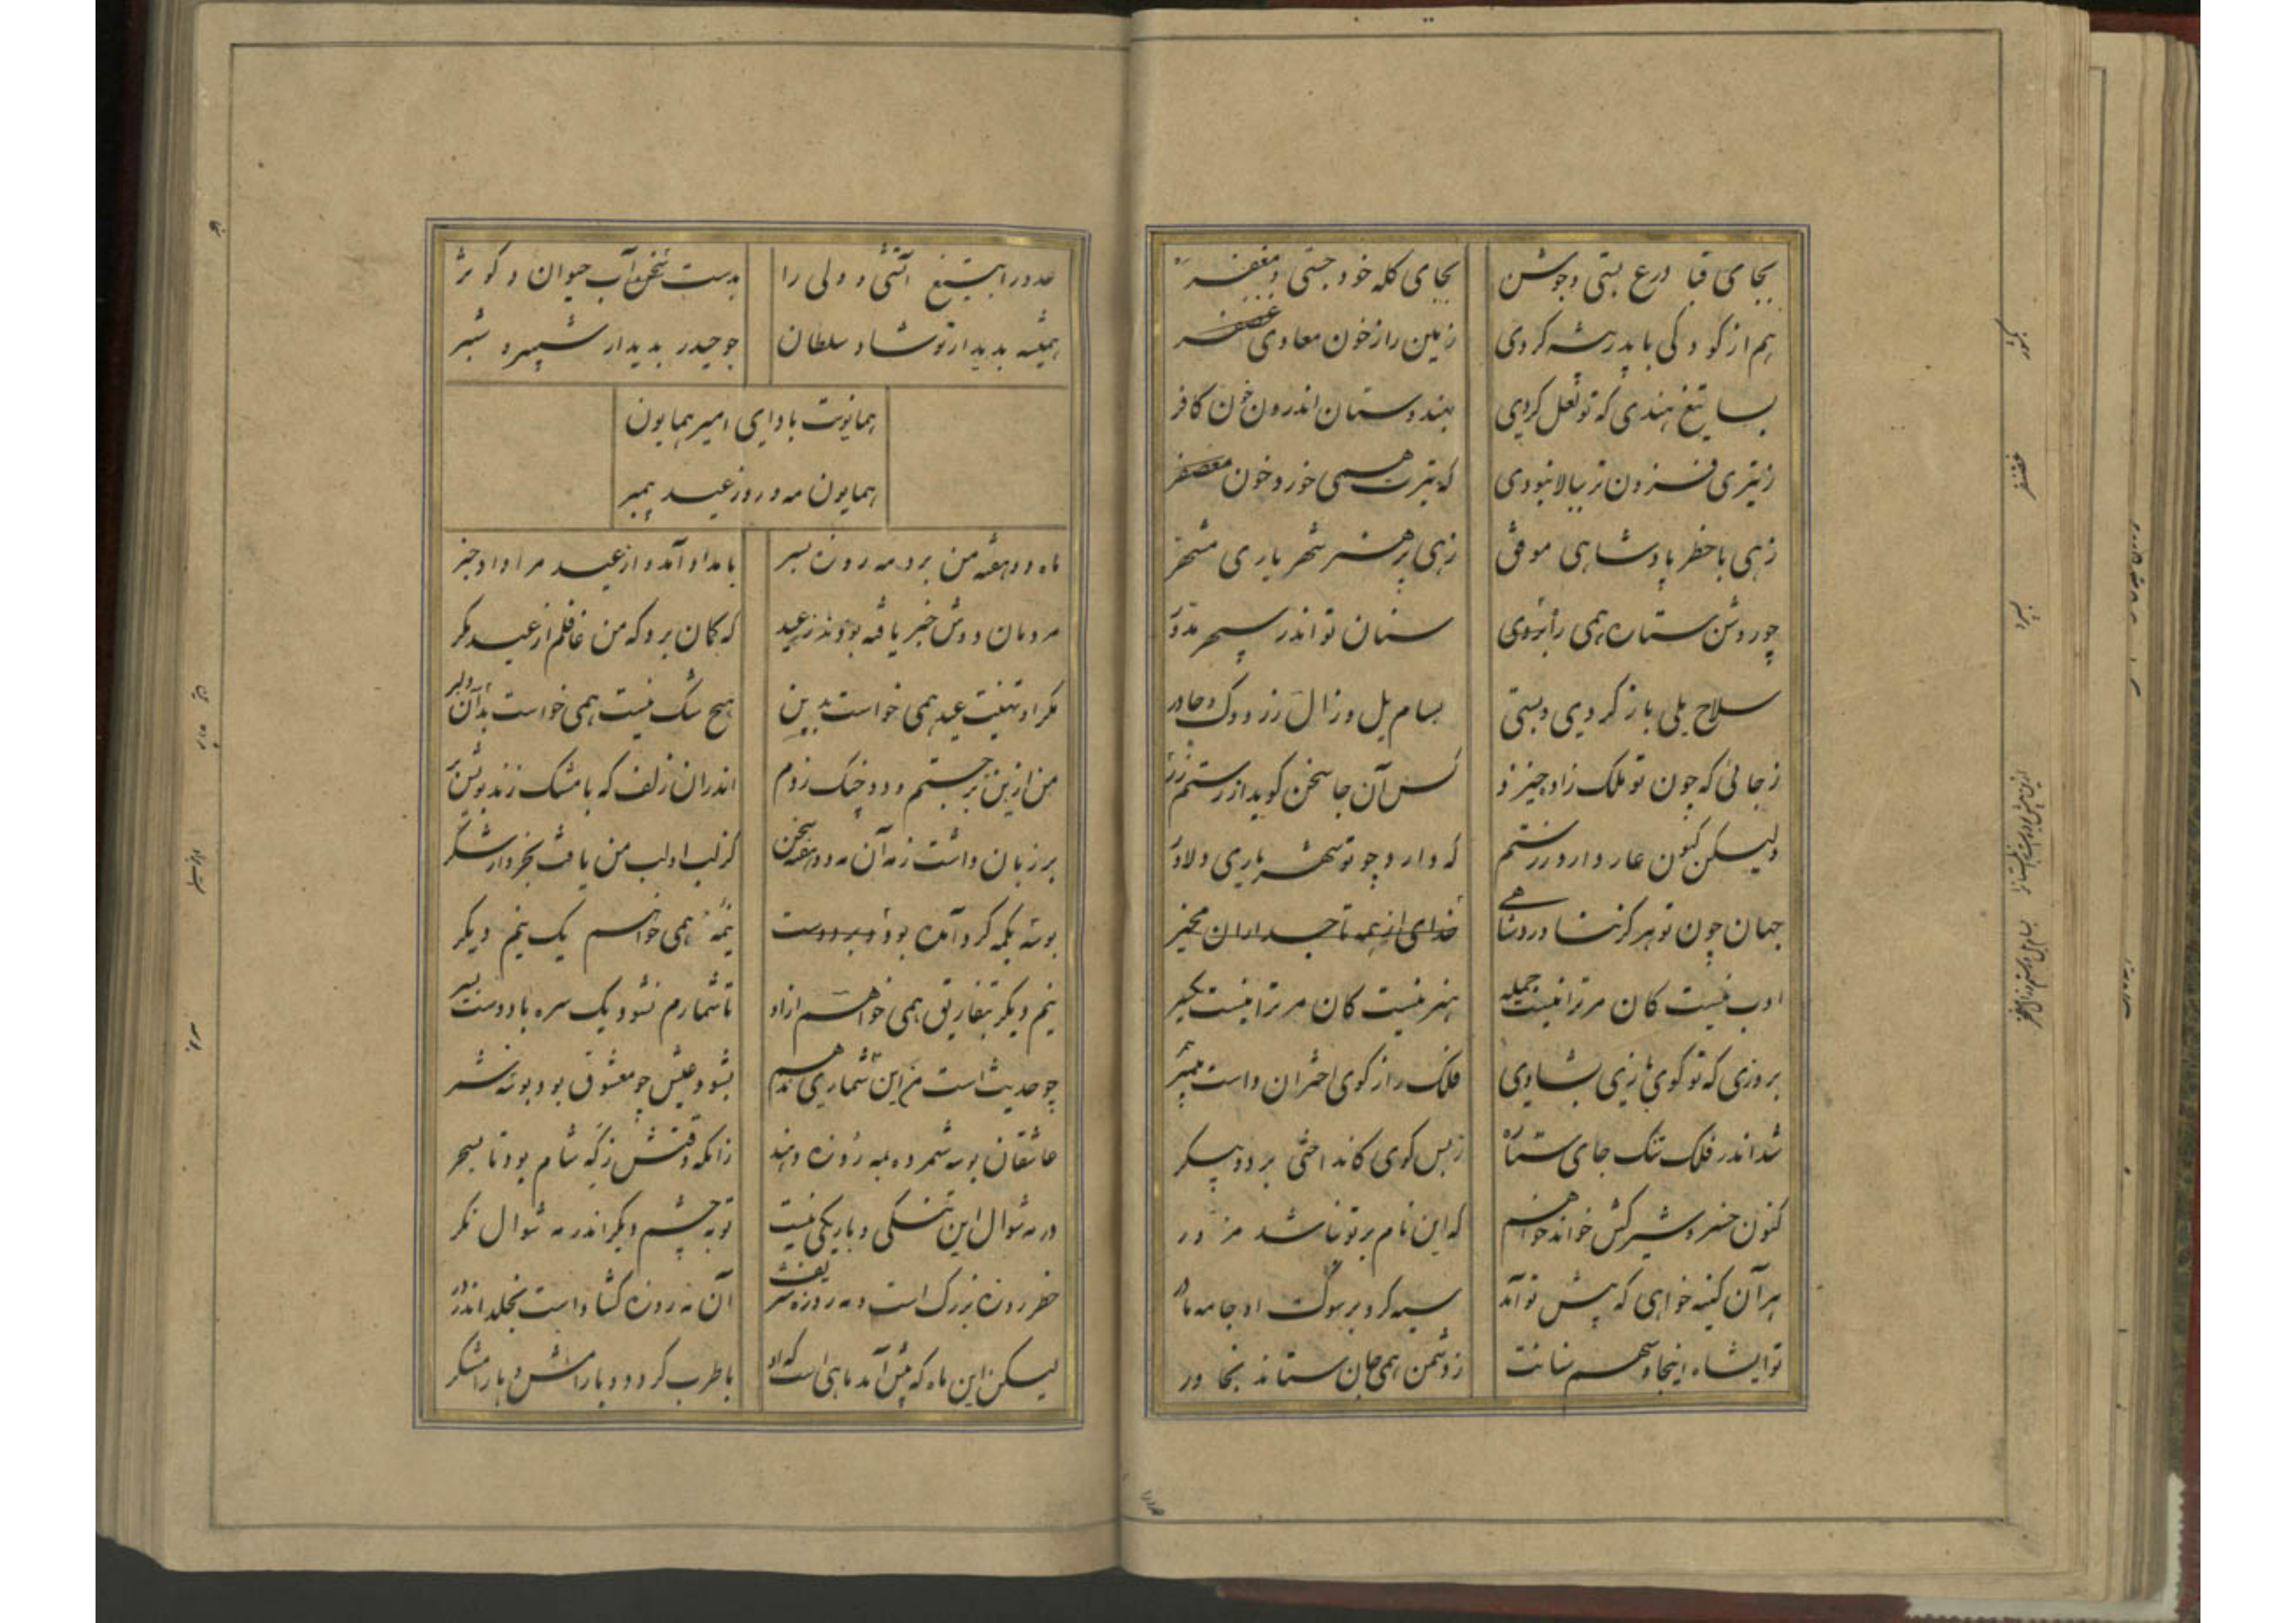 بجای قبا درع بستی و جوشن بجای کله خود جستی و مغفر
هم از کودکی با پدر بیشه کردی زمین را ز خون معادی معصفر
بسا تیغ هندی که تو لعل کردی بهندوستان اندرون خون کافر
ز تیری فزون تر ببالا نبودی که تیرت همی خورد خون معصفر
زهی با خطر پادشاهی موفق زهی پر هنر شهریاری مشهر
چو روشن ستاره همی راه بردی سنان تو اندر سپهر مدور
سلاح یلی باز کردی و بستی بسام یل و زال زر دوک و چادر
ز جائی که چون تو ملک زاد خیزد کس آن جا سخن گوید از رستم زر
ولیکن کنون عار دارد ز رستم که دارد چو تو شهریاری دلاور
جهان چون تو هرگز نشا در دشاهی خدای از همه تاجداران مخیر
ادب نیست کان مر ترا نیست جمله هنر نیست کان مر ترا نیست یکسر
بروزی که تو گوی بازی بشادی فلک را ز گوی اختران داست
شد اندر فلک تنک جای ستاره ز بس گوی کانداختی بر دوپیکر
کنون خسرو شیرکش خواند خواهم که این نام بر تو نباشد مزور
هر آن کینه خواهی که پیش تو آمد سیه کرد بر سوک او جامه مادر
تو ایشاه اینجا و سهم سنانت ز دشمن همی جان ستاند بخاور
عدو را بتیغ آتشی و ولی را بدست سخن آب حیوان و کوثر
همیشه بدیدار تو شاد سلطان چو حیدر بدیدار شبیر و شبر
همایونت باد ای امیر همایون
همایون مه و روز عید پیمبر
ماه دو هفته من برد مه روزه بسر بامداد آمد و از عید مرا داد خبر
مردمان دوش خبر یافته بودند ز عید که گمان برد که من غافلم از عید مگر
مگر او تهنیت عید همی خواست بدین هیچ شک نیست همی خواست بد آن دلبر
من ازین بر جستم و دو چنک زدم اندران زلف که با مشک زند بویش بر
بر زبان داشت ز مه آن مه دو هفته سخن کز لب او لب من یافت بخروار شکر
بوسه یکمه گرد آمده بودم بر دوست نیمه همی خواهم یک نیم دیگر
نیم دیگر بتفاریق همی خواهم ازو تا شمارم نشود یک سره با دوست بسر
چو حدیث است من این شماری هم بشود عیش چو معشوق بود بوسه شمر
عاشقان بوسه شمرده بمه روزه دهند زانکه وقتش زگه شام بود تا بسحر
در مه شوال این تنگی و باریکی نیست تو به چشم دیگر اندر مه شوال نگر
خطر روزه بزرگ است و مه روزه شریف آن مه روزه گشاداست بخلد اندر در
لیکن این ماه که پیش آمد ماهی است که او با طرب گرود و با رامش و با رامشگر